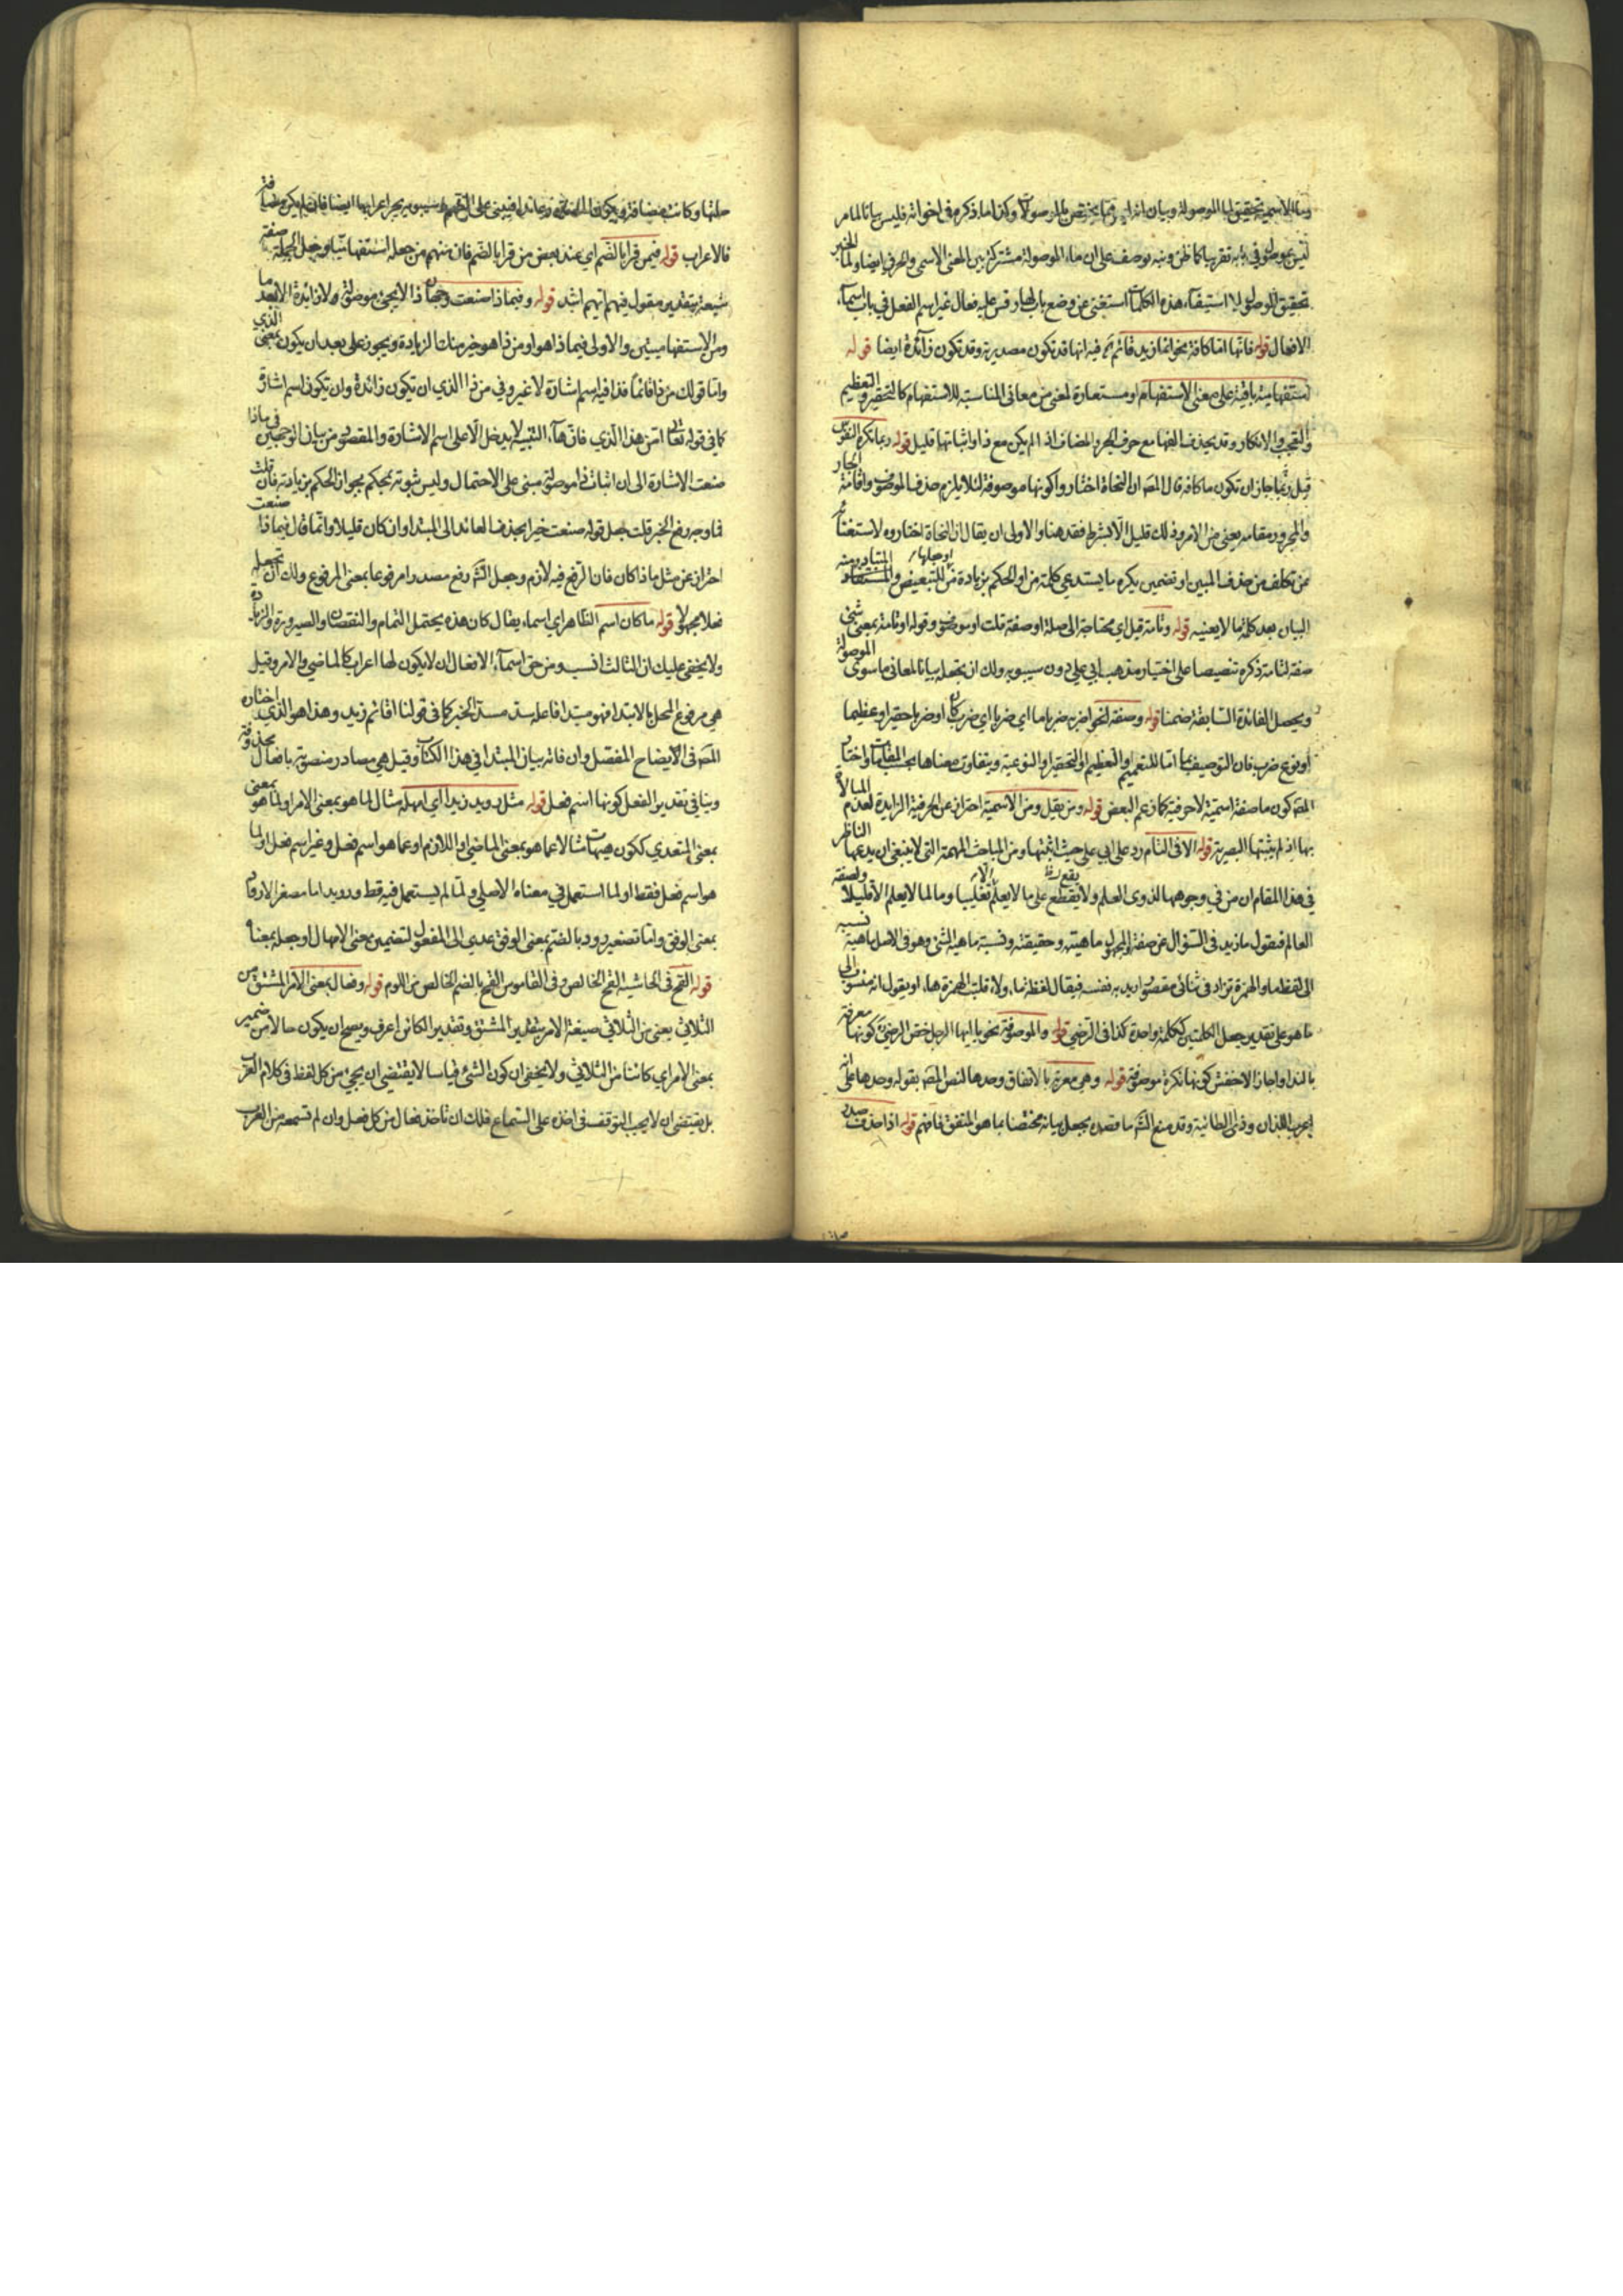 وما الاسمية تحقيق لما الموصولة وبيان انه مما يختص بالموصولات وكذا ما ذكره في اخواته فليس بيانا لما مر
ليس بموصول في بابه تقريبا كما ظن ونبه بوصف على ان ماء الموصولة مشتركة بين المعنى الاسمي والحرفي ايضا ولما الخبر
تحقيق الموصول لا استيفاء هذه الكلمات استغنى عن وضع باب لها وقس عليه فعال غير اسم الفعل في باب اسماء
الافعال قوله فانها اما كافة نحو انما زيد قائم ثم فيه انها قد تكون مصدرية وقد تكون زائدة ايضا قوله
استفهامية باقية على معنى الاستفهام او مستعارة لمعنى من معاني المناسبة للاستفهام كالتحقير والتعظيم
والتعجب والانكار وقد يحذف الفها مع حرف الجر والمضاف اذا لم يكن مع ذا واثباتها قليل قوله ربما تكره النفوس
قيل ربما جاز ان تكون ما كافة قال المص ان النحاة اختاروا كونها موصوفة لئلا يلزم حذف الموصوف واقامة الجار
والمجرور مقامه يعني من الامر وذلك قليل الا بشرط فقد هنا والاولى ان يقال ان النحاة اختاروه لاستغنائه
عن تكلف من حذف المبين او تضمين يكره ما يستدعي كلمة من او الحكم بزيادة من او جعلها للتبعيض والمستفاد المتبادر منه
البيان بعد كلمة ما لا يعنيه قوله وتامة قيل اي محتاجة الى صلة او صفة قلت او موصوف وقوله او تامة بمعنى شيء
صفة لتامة ذكره تنصيصا على اختيار مذهب ابي علي دون سيبويه ولك ان يجعله بيانا لمعاني ما سوى الموصولة
ويحصل الفائدة السابقة ضمنا قوله وصفة نحو اضربه ضربا ما اي ضربا اي ضرب كان او ضربا حقيرا وعظيما
او نوع ضرب فان التوصيف بما اما للتعميم او التعظيم او التحقير او النوعية ويتفاوت معناها بحسب المقامات واختار
المص كون ما صفة اسمية لا حرفية كما زعم البعض قوله ومن يقل ومن الاسمية احتراز عن الحرفية الزايدة لعدم المبالاة
بها اذ لم يثبتها البصرية قوله الا في التام رد على ابي علي حيث اثبتها ومن المباحث المهمة التي لا ينبغي ان يدعها الناظر
في هذا المقام ان من في وجوهها لذوي العلم ولا يقع يقطع على ما لا يعلم الا تغليبا وما لما لا يعلم الا قليلا ولصفة
العالم فيقول ما زيد في السؤال عن صفة المجهول ماهيته وحقيقته ونسبة ماهية الشيء وهو في الاصل ماهية نسبه
الى لفظ ما والهمزة تزاد في ثنائي مقصور اريد به نفسه فيقال لفظة ماء ولاء قلبت الهمزة هاء او يقول انه منسوب الى
ما هو على تقدير جعل الكلمتين ككلمة واحدة كذا في الرضي قوله والموصوفة نحو يا ايها الرجل خص الرضي كونها معرفة
بالنداء واجاز الاخفش كونها نكرة موصوفة قوله وهي معربة بالاتفاق وحدها لنص المص بقوله وحدها على ان
اعراب اللذان وذو الطائية وقد منع الشم ما قصده بجعل بيانه مختصا بما هو المتفق فافهم قوله اذا حذفت صدر
صلتها وكانت مضافة ... فيبنى على الضم ... سيبويه يجوز اعرابها ايضا فان لم يكن مضافة
فالاعراب قوله فيمن قرا بالضم اي عند بعض من قرا بالضم فان منهم من جعله استفهاميا وجعل الجملة صفة
شيعة بتقدير مقول فيهم ايهم اشد قوله وفيما ذا صنعت وجهان ذا لا يجيء موصولة ولا زائدة الا بعد ما
ومن الاستفهاميتين والاولى فيما ذا هو او من ذا هو خير منك الزيادة ويجوز على بعد ان يكون بمعنى الذي
واما قولك من ذا قائما فذا فيه اسم اشارة لا غير وفي من ذا الذي ان تكون زائدة وان تكون اسم اشارة
كما في قوله تعالى امن هذا الذي فان هاء التنبيه لا يدخل الا على اسم الاشارة والمقصود من بيان الوجهين في ماذا
صنعت الاشارة الى ان اثبات ذا موصولة مبني على الاحتمال وليس ثبوته بمحكم بجواز الحكم بزيادته فان قلت
فما وجه رفع الخبر قلت جعل قوله صنعت خبرا بحذف العائد الى المبتدا وان كان قليلا وانما قال فيما ذا صنعت
احتراز عن مثل ما ذا كان فان الرفع فيه لازم وجعل الشم رفع مصدر امرفوعا بمعنى المرفوع ولك ان تجعله
فعلا مجهولا قوله ما كان اسم الظاهر اي اسماء يقال كان هذه يحتمل التمام والنقصان والصيرورة والزيادة
ولا يخفى عليك ان الثالث انسب ومن حق اسماء الافعال ان لا يكون لها اعراب كالماضي والامر وقيل
هي مرفوع المحل بالابتداء فهو مبتدا فاعله سد مسد الخبر كما في قولنا اقائم زيد وهذا هو الذي اختاره
المص في الايضاح المفصل وان فاته بيان المبتدا في هذا الكتاب وقيل هي مصادر منصوبة بافعال محذوفة
وينافي تقدير الفعل كونها اسم فعل قوله مثل رويد زيدا اي امهله مثال لما هو بمعنى الامر او لما هو بمعنى
بمعنى المتعدي ككون هيهات مثالا عما هو بمعنى الماضي او اللازم او عما هو اسم فعل وغير اسم فعل او لما
هو اسم فعل فقط او لما استعمل في معناه الاصلي ولما لم يستعمل فيه قط ورويد اما مصغر الارواد
بمعنى الرفق واما تصغير رود بالضم بمعنى الرفق عدي الى المفعول لتضمين معنى الامهال او جعله بمعناه
قوله القح في الحاشية القح الخالص وفي القاموس القح بالضم الخالص من اللوم قوله وفعال بمعنى الامر المشتق من
الثلاثي يعني من الثلاثي صيغة الامر بتقدير المشتق وتقدير الكائن اعرف ويصح ان يكون حالا من ضمير
بمعنى الامر اي كائنا من الثلاثي ولا يخفى ان كون الشيء قياسا لا يقتضي ان يجيء من كل لفظ في كلام العرب
بل يقتضي ان لا يجب التوقف في اخذه على السماع فلك ان تاخذ فعال من كل فعل وان لم تسمعه من العرب